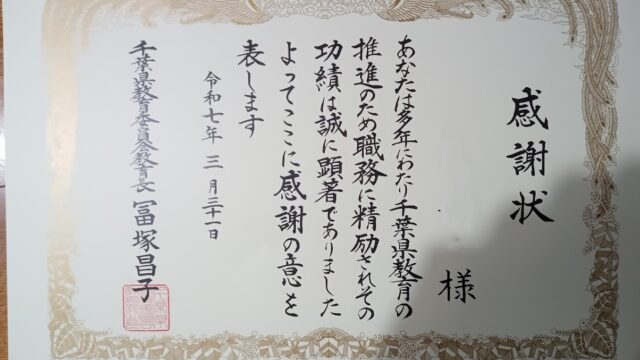 感謝状
様
あなたは多年にわたり千葉県教育の
推進のため職務に精励されその
功績は誠に顕著でありました
よってここに感謝の意を
表します
令和七年三月三十一日
千葉県教育委員会教育長 冨塚昌子